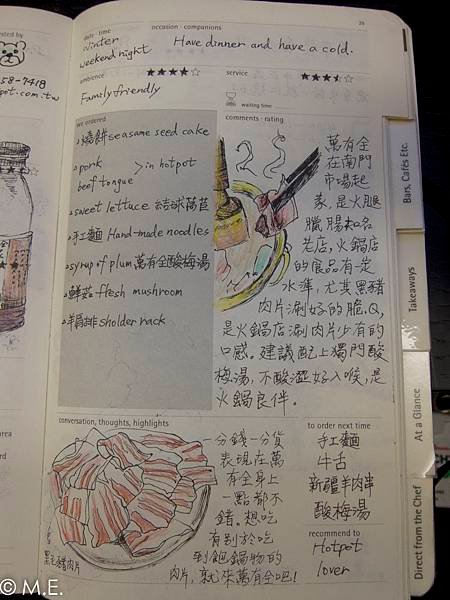 36
date · time
occasion · companions
winter
weekend night
Have dinner and have a cold.
ambience
★★★★☆
service
Family friendly
waiting time
58-7418
pot.com.tw
we ordered
燒餅 seasame seed cake
pork
beef tongue
> in hotpot
sweet lettuce 結球萵苣
手工麵 Hand-made noodles
syrup of plum 萬有全酸梅湯
鮮菇 ftesh mushroom
羊肩排 sholder rack
comments · rating
萬有全
在南門
市場起
家，是火腿
臘腸知名
老店，火鍋店
的食品有一定
水準，尤其黑豬
肉片涮好的脆、Q，
是火鍋店涮肉片少有的
口感。建議配上獨門酸
梅湯，不酸澀好入喉，是
火鍋良伴。
conversation, thoughts, highlights
黑毛豬肉片
分錢一分貨
表現在萬
有全身上
一點都不
錯。想吃
有別於吃
到飽鍋物的
肉片，就來萬有全吧！
to order next time
手工麵
牛舌
新疆羊肉串
酸梅湯
recommend to
Hotpot
lover
Bars, Cafés Etc.
Takeaways
At a Glance
Direct from the Chef
© M.E.